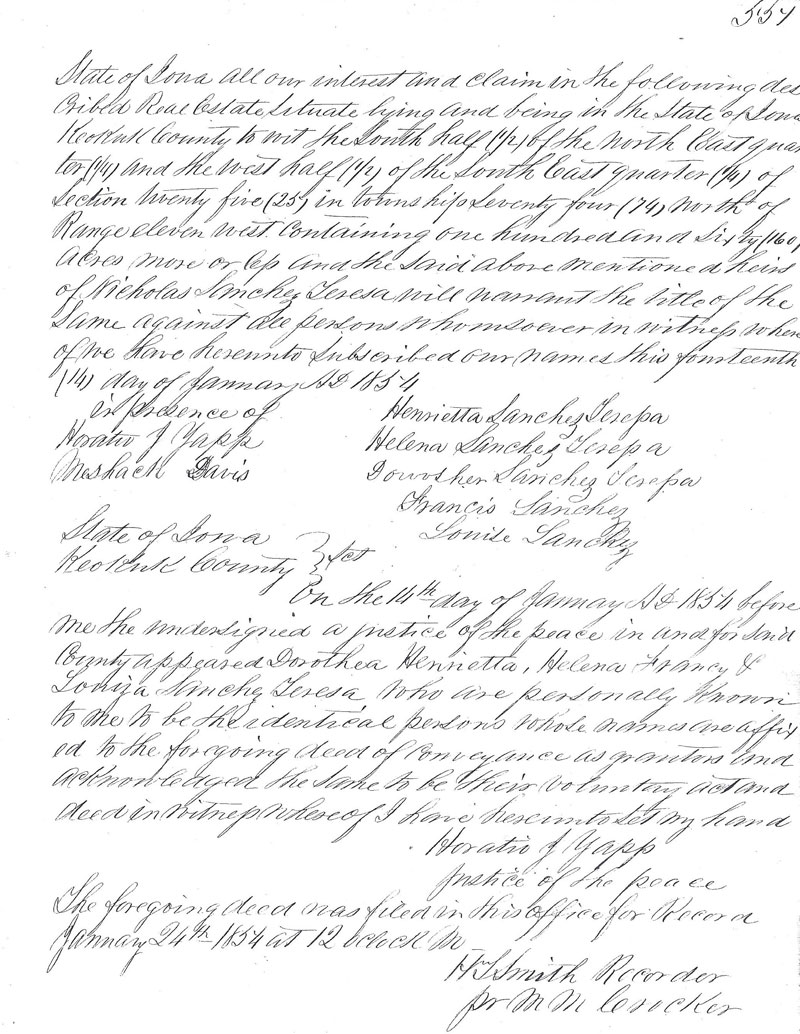 557
State of Iowa all our interest and claim in the following des
cribed Real Estate Situate lying and being in the State of Iowa
Keokuk County to wit the South half (1/2) of the North East quar
ter (1/4) and the west half (1/2) of the South East quarter (1/4) of
Section twenty five (25) in township Seventy four (74) North of
Range eleven west containing one hundred and Sixty (160)
Acres more or less and the Said above mentioned heirs
of Nicholas Sanchez Teresa will warrant the title of the
Same against all persons whomsoever in witness where
of we have hereunto Subscribed our names this fourteenth
(14) day of January AD 1854
in presence of
Horatio J Yapp
Meshack Davis
Henrietta Sanchez Teresa
Helena Sanchez Teresa
Sanchez Teresa
Francis Sanchez
Louise Sanchez
State of Iowa
Keokuk County } Sct
On the 14th day of January AD 1854 before
me the undersigned a justice of the peace in and for Said
County appeared Dorothea Henrietta, Helena Francy &
Louiza Sanchez Teresa who are personally known
to me to be the identical persons whose names are affix
ed to the foregoing deed of conveyance as grantors and
acknowledged the same to be their voluntary act and
deed in witness whereof I have hereunto Set my hand
Horatio J Yapp
Justice of the peace
The foregoing deed was filed in this office for Record
January 24th 1854 at 12 oclock M
Smith Recorder
pr M M Crocker